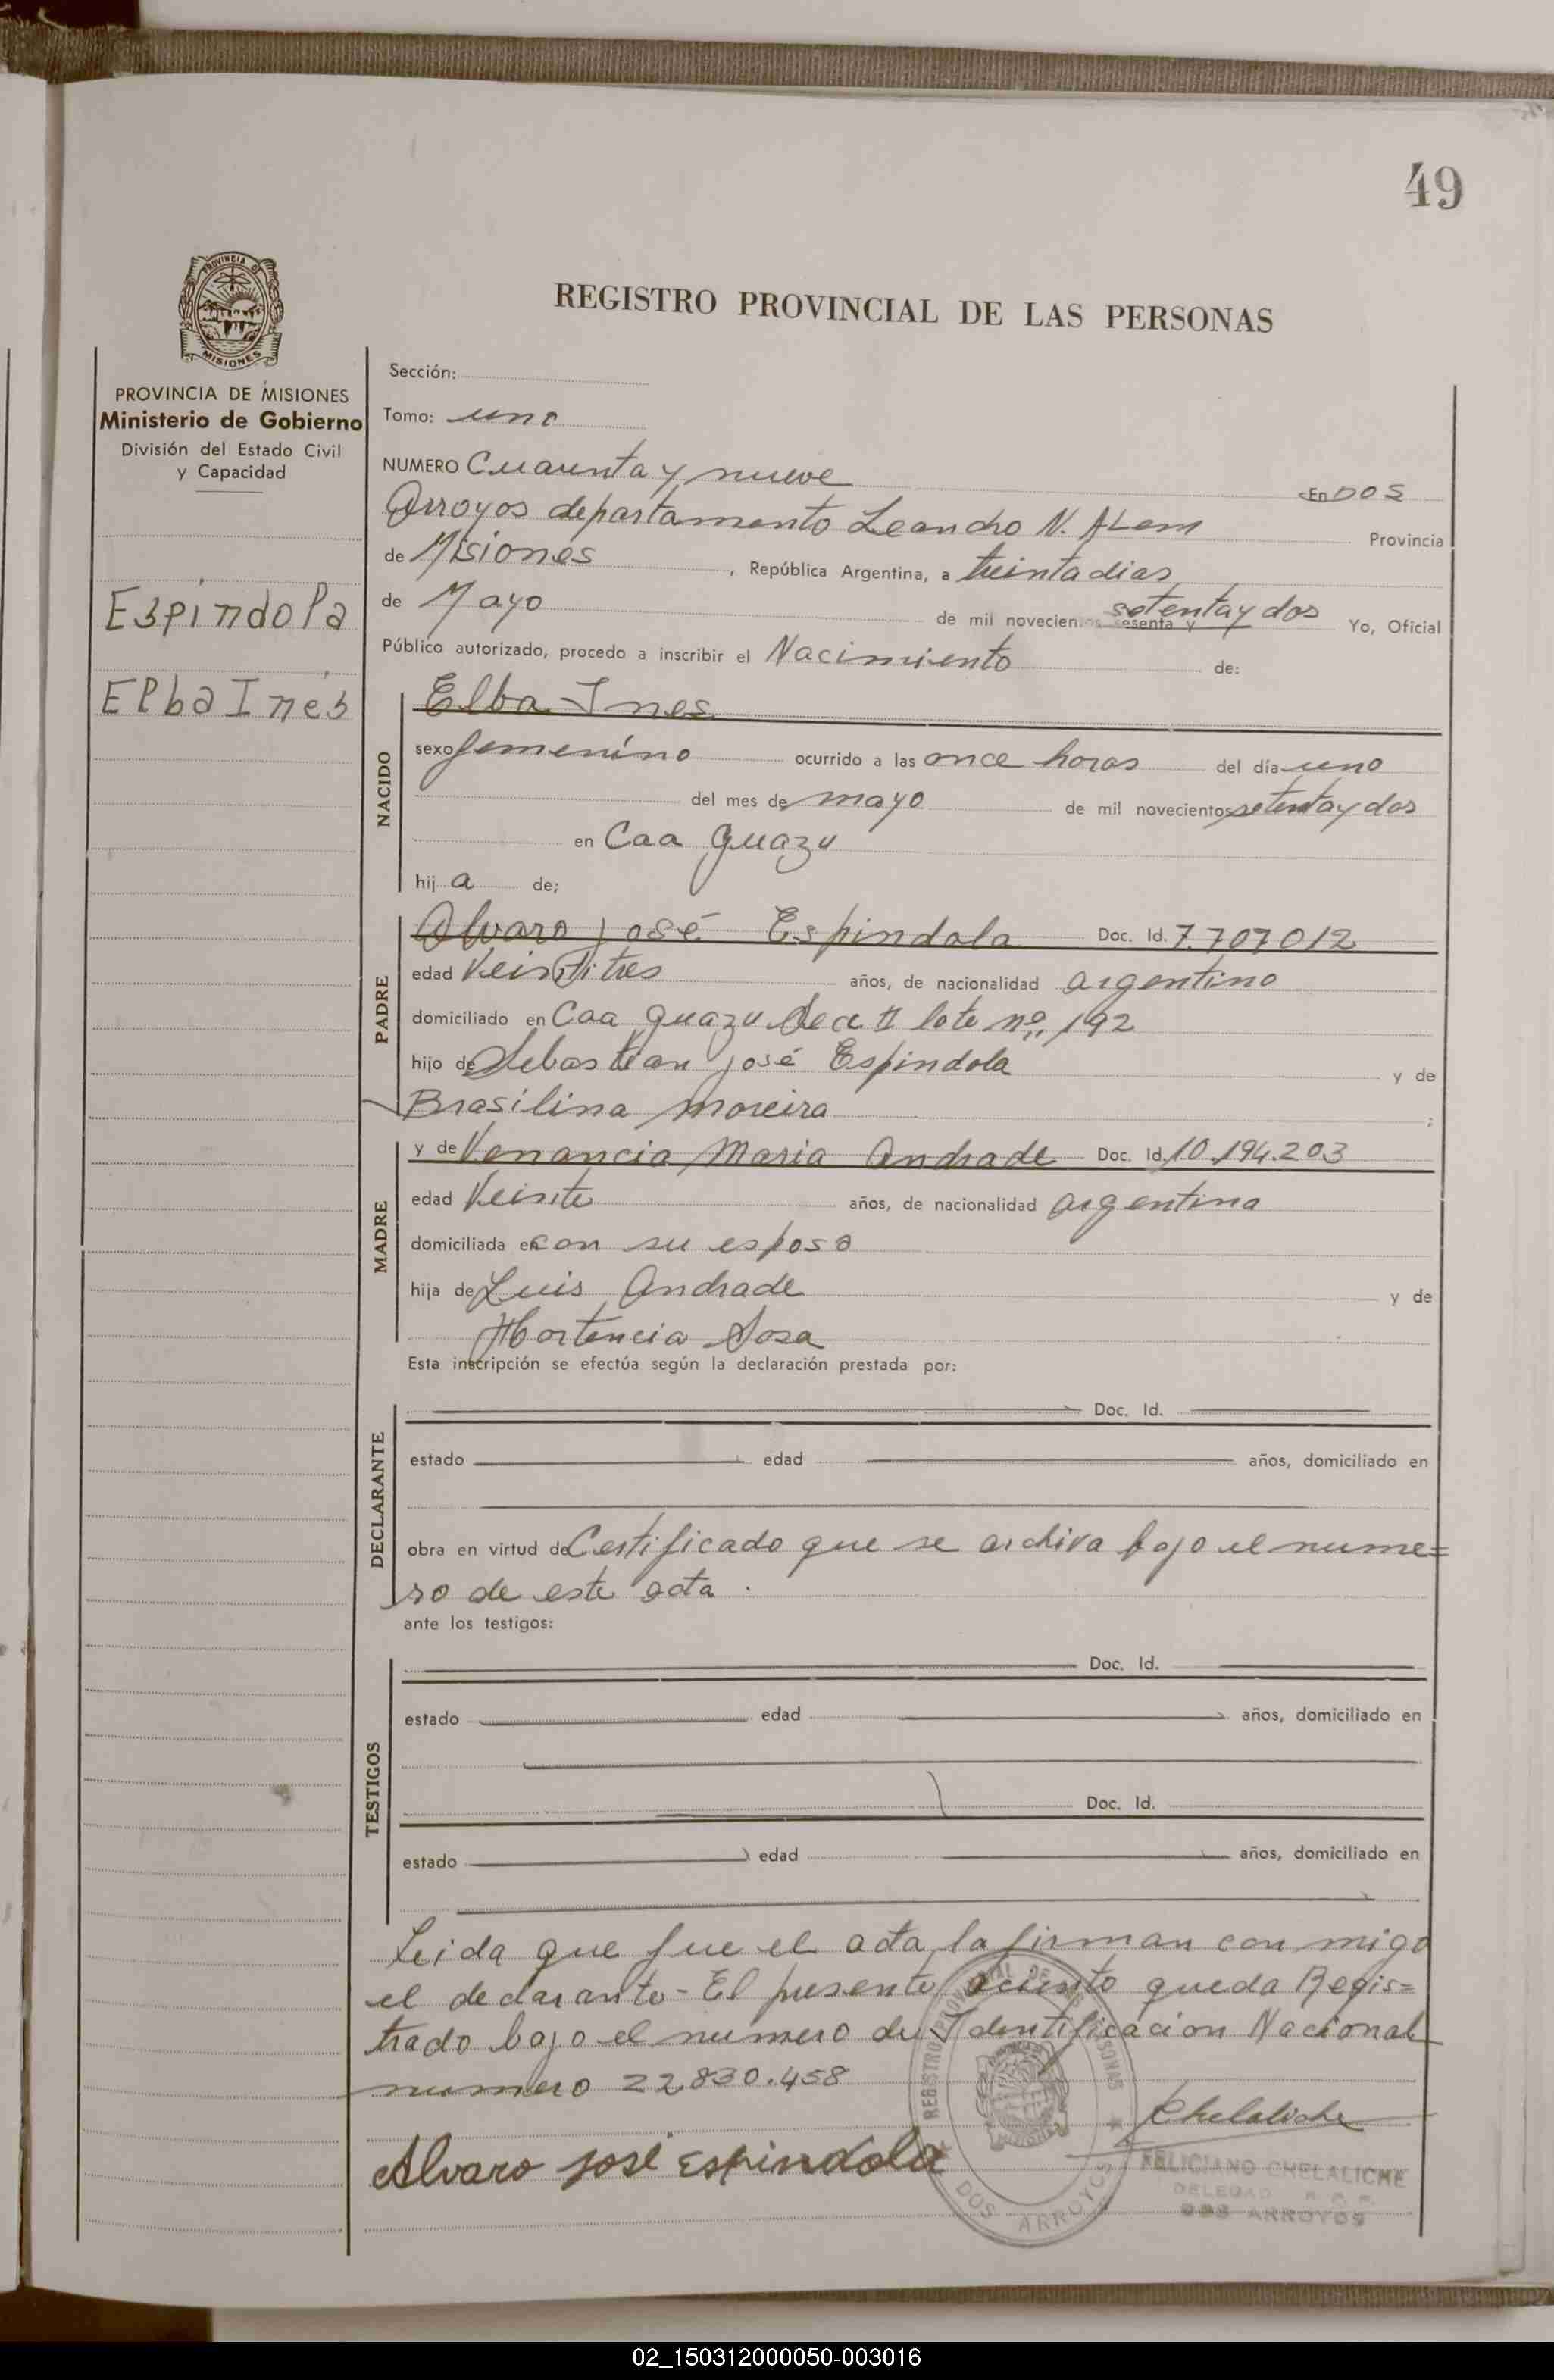 49
PROVINCIA DE
MISIONES
PROVINCIA DE MISIONES
Ministerio de Gobierno
División del Estado Civil
y Capacidad
Espíndola
Elba Inés
REGISTRO PROVINCIAL DE LAS PERSONAS
Sección:
Tomo: uno
NUMERO Cuarenta y nueve En DOS
Arroyos departamento Leandro N. ALem Provincia
de Misiones, República Argentina, a treinta dias
de Mayo de mil novecientos sesenta y setenta y dos Yo, Oficial
Público autorizado, procedo a inscribir el Nacimiento de:
NACIDO
Elba Ines
sexo femenino ocurrido a las once horas del día uno
del mes de mayo de mil novecientos setenta y dos
en Caa Guazu
hij a de;
PADRE
Alvaro José Espindola Doc. Id. 7.707012
edad Veintitres años, de nacionalidad argentino
domiciliado en Caa guazu Secc II lote nº 192
hijo de Sebastian José Espindola y de
Brasilina moreira ;
MADRE
y de Venancia Maria Andrade Doc. Id. 10.194.203
edad Veinte años, de nacionalidad argentina
domiciliada en con su esposo
hija de Luis Andrade y de
Hortencia Sosa
Esta inscripción se efectúa según la declaración prestada por:
DECLARANTE
Doc. Id.
estado edad años, domiciliado en
obra en virtud de Certificado que se archiva bajo el nume=
ro de este acta.
ante los testigos:
TESTIGOS
Doc. Id.
estado edad años, domiciliado en
Doc. Id.
estado edad años, domiciliado en
Leida que fue el acta, la firman con migo
el declarante - El presente asiento queda Regis=
trado bajo el numero de Identificacion Nacional
numero 22.830.458
Chelaliche
Alvaro José Espindola
REGISTRO PROVINCIAL DE LAS PERSONAS
DOS ARROYOS
FELICIANO CHELALICHE
DELEGADO R. P. P.
DOS ARROYOS
02_150312000050-003016